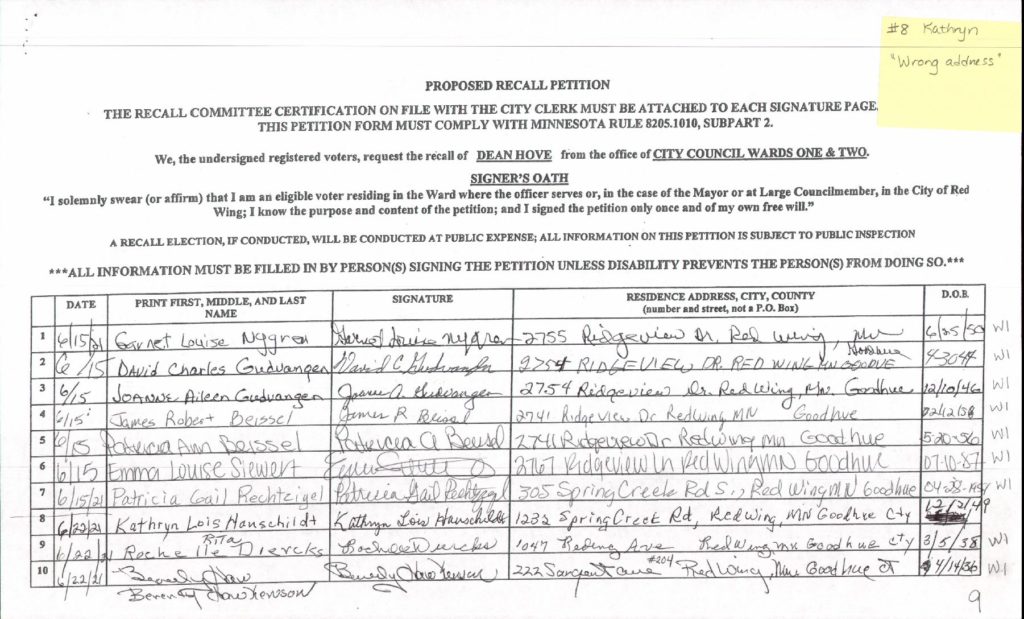 #8 Kathryn
"Wrong address"
PROPOSED RECALL PETITION
THE RECALL COMMITTEE CERTIFICATION ON FILE WITH THE CITY CLERK MUST BE ATTACHED TO EACH SIGNATURE PAGE.
THIS PETITION FORM MUST COMPLY WITH MINNESOTA RULE 8205.1010, SUBPART 2.
We, the undersigned registered voters, request the recall of DEAN HOVE from the office of CITY COUNCIL WARDS ONE & TWO.
SIGNER'S OATH
"I solemnly swear (or affirm) that I am an eligible voter residing in the Ward where the officer serves or, in the case of the Mayor or at Large Councilmember, in the City of Red
Wing; I know the purpose and content of the petition; and I signed the petition only once and of my own free will."
A RECALL ELECTION, IF CONDUCTED, WILL BE CONDUCTED AT PUBLIC EXPENSE; ALL INFORMATION ON THIS PETITION IS SUBJECT TO PUBLIC INSPECTION
***ALL INFORMATION MUST BE FILLED IN BY PERSON(S) SIGNING THE PETITION UNLESS DISABILITY PREVENTS THE PERSON(S) FROM DOING SO.***
DATE PRINT FIRST, MIDDLE, AND LAST NAME SIGNATURE RESIDENCE ADDRESS, CITY, COUNTY (number and street, not a P.O. Box) D.O.B.
1 6/15/21 Garnet Louise Nygren Garnet Louise Nygren 2755 Ridgeview Dr. Red Wing, MN Goodhue 6/25/50 W1
2 6/15 DAVID Charles Gudvangen David C Gudvangen 2754 RIDGEVIEW DR. RED WING MN 43044 W1
3 6/15 JOANNE Aileen Gudvangen Joanne A. Gudvangen 2754 Ridgeview Dr. Red Wing, Mn. Goodhue 12/10/46 W1
4 6/15 James Robert Beissel James R Beissel 2741 Ridgeview Dr Redwing MN Goodhue W1
5 6/15 Patricia Ann Beissel Patricia A Beissel 2741 Ridgeview Dr Redwing mn Goodhue 5-20-56 W1
6 6/15 Emma Louise Siewert 2767 Ridgeview Ln Red Wing MN Goodhue 07-10-87 W1
7 6/15/21 Patricia Gail Rechtzigel Patricia Gail Rechtzigel 305 Spring Creek Rd S., Red Wing MN Goodhue 04-23-1951 W1
8 6/22/21 Kathryn Lois Hanschildt Kathryn Lois Hanschildt 1232 Spring Creek Rd, Red Wing, MN Goodhue Cty 12/21/49
9 6/22/21 Rochelle Rita Diercks Rochelle Diercks 1047 Ave Red Wing mn Goodhue cty 3/5/38 W1
10 6/22/21 Beverly Beverly Hawkenson 222 Sargent #204 Red Wing, Mn Goodhue ct 4/14/36 W1
Beverly Hawkenson
9